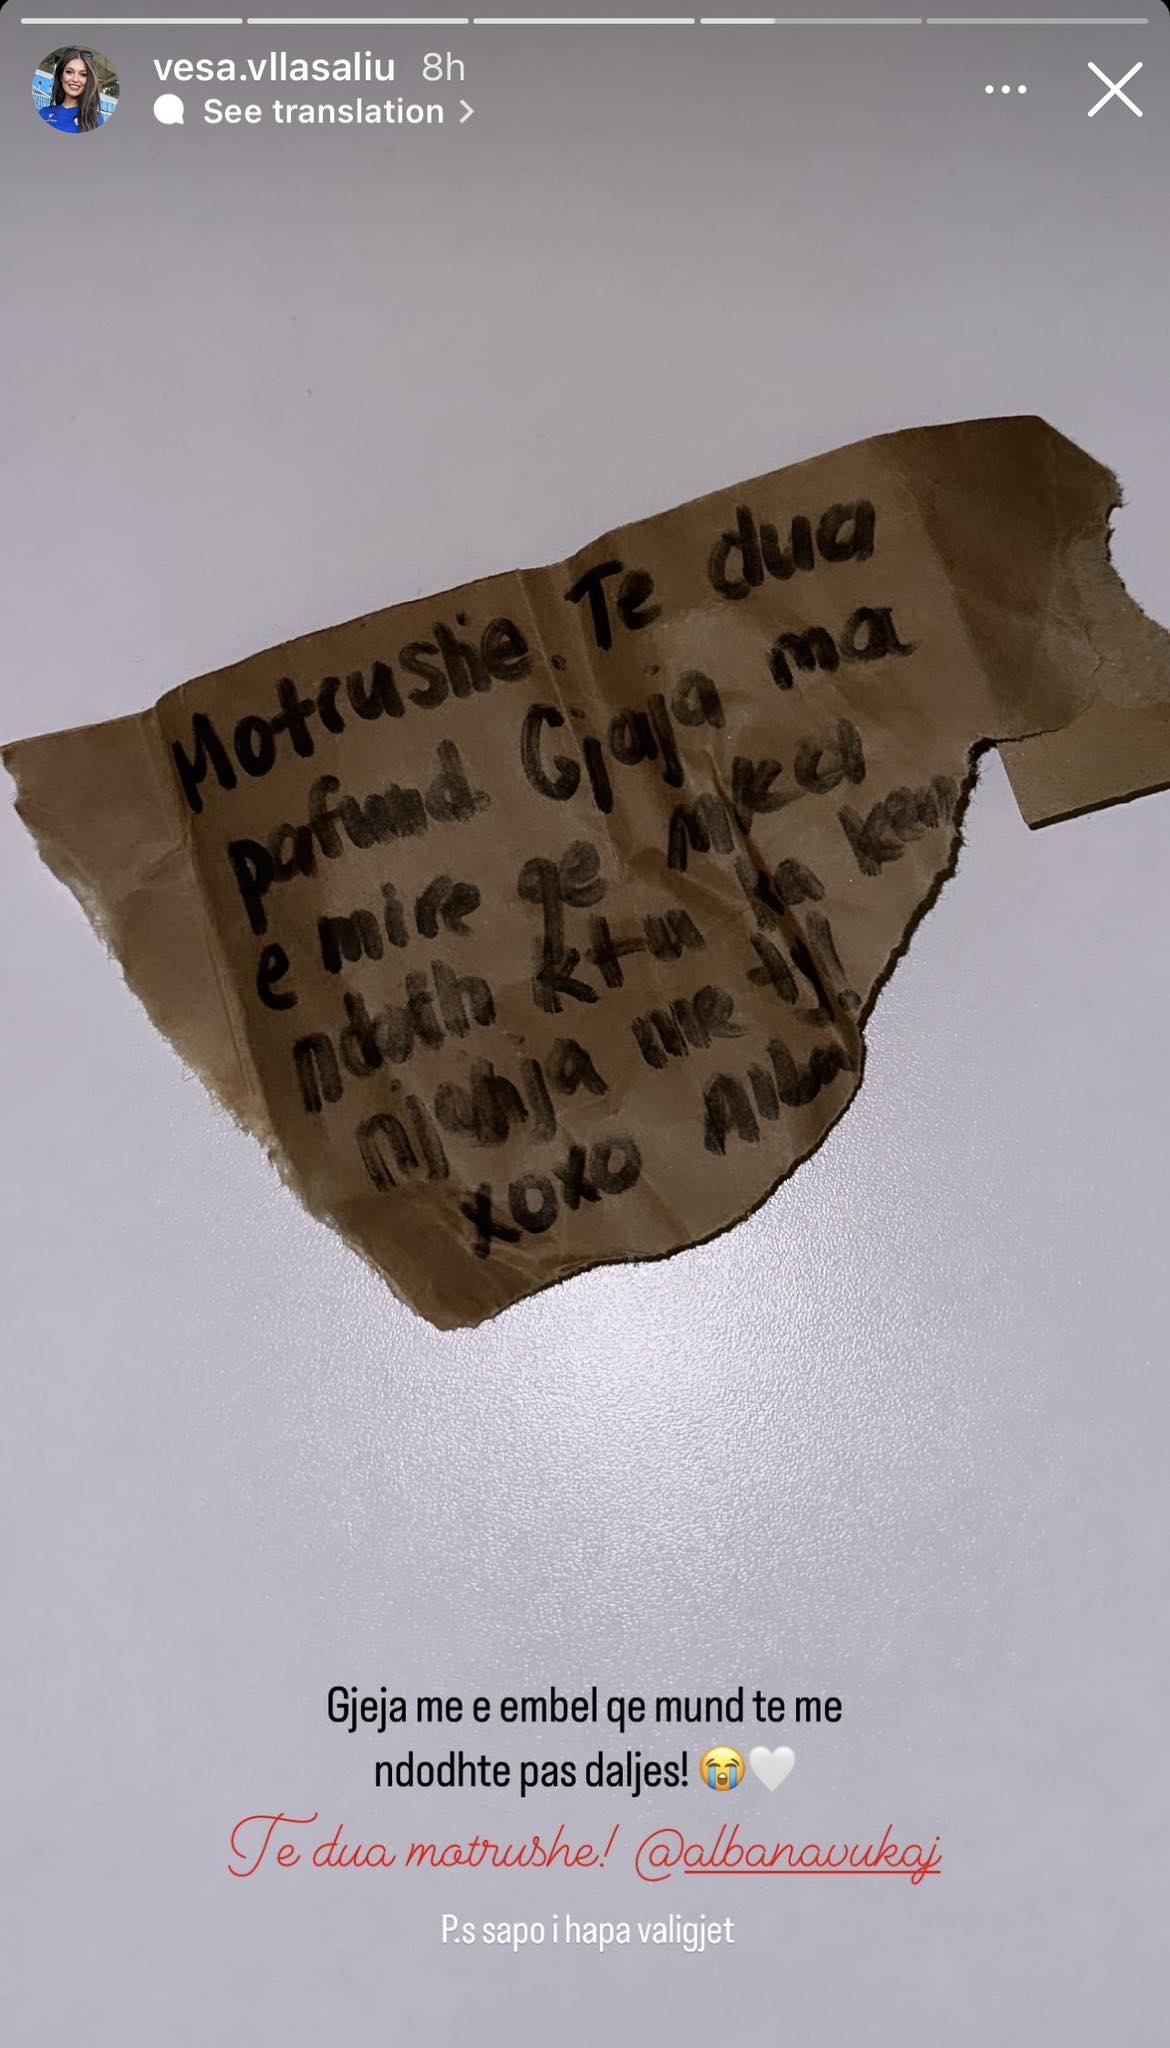 vesa.vllasaliu 8h
See translation
Motrushe. Te dua
pafund Gjaja ma
e mire qe mkel
ndoth ktu ka ken
njohja me ty!
xoxo Alba
Gjeja me e embel qe mund te me
ndodhte pas daljes! 😭🤍
Te dua motrushe! @albanavukaj
P.s sapo i hapa valigjet